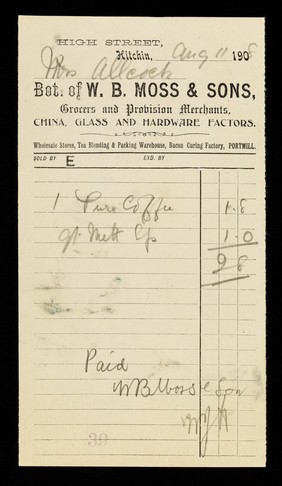 HIGH STREET,
Hitchin, Aug 11 1908
Mrs Allcock
Bot. of W. B. MOSS & SONS,
Grocers and Provision Merchants,
CHINA, GLASS AND HARDWARE FACTORS.
Wholesale Stores, Tea Blending & Parking Warehouse, Bacon Curing Factory, PORTMILL.
SOLD BY E EXD. BY
1 Pure Coffee 1.8
1.0
2 8
Paid
WB Moss & Son
39